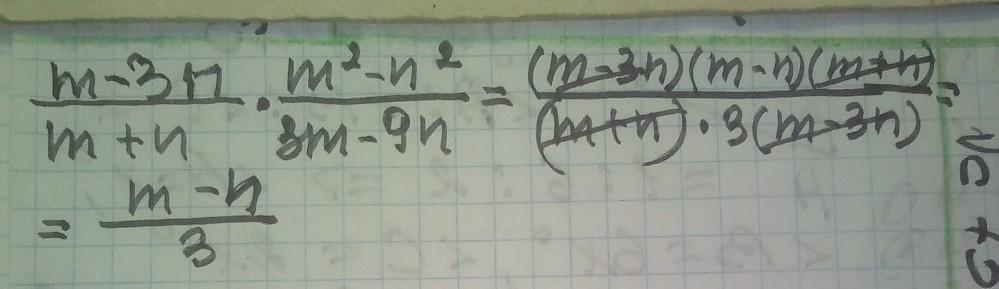 (m-3n)/(m+n) · (m²-n²)/(3m-9n) = ((m-3n)(m-n)(m+n))/((m+n)·3(m-3n)) =
= (m-n)/3